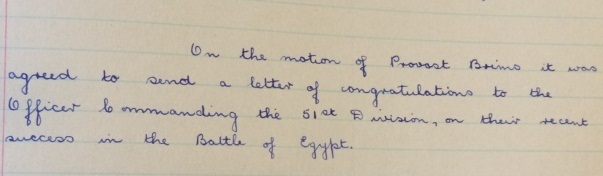 On the motion of Provost Brims it was
agreed to send a letter of congratulations to the
Officer Commanding the 51st Division, on their recent
success in the Battle of Egypt.